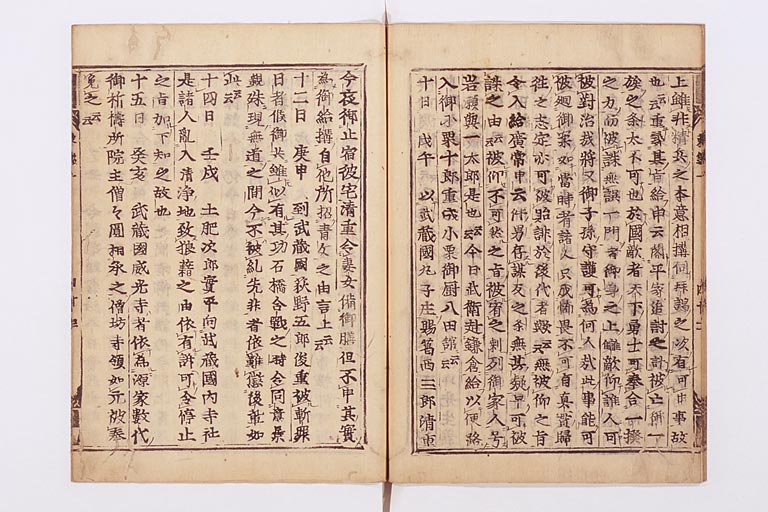 上雖非精兵之本意相搆伺拜謁之次有可申事故
也云々重尋其旨給申云閣平家追討之計被亡御一
族之条太不可也於國敵者天下勇士可奉合一揆
之力而被誅無誤一門者御身之上讎敵仰誰人可
被對治哉將又御子孫守護可爲何人哉此事能可
被廻御案如當時者諸人只成怖畏不可有真實歸
往之志定亦可被貽誹於後代者歟云々無被仰之旨
令入給廣常申云件男存謀反之条無其疑早可被
誅之由云々被仰不可然之旨被宥之剰列御家人号
岩瀬與一太郎是也云々今日武衛赴鎌倉給以便路
入御小栗十郎重成小栗御厨八田舘云々
十日 戊午 以武藏國丸子庄賜葛西三郎清重
今夜御止宿彼宅清重令妻女備御膳但不申其實
爲御結搆自他所招青女之由言上云々
十二日 庚申 到武藏國荻野五郎俊重被斬罪
日者候御共雖似有其功石橋合戰之時令同意景
親殊現無道之間今不被糺先非者依難懲後輩如
此云々
十四日 壬戌 土肥次郎實平向武藏國内寺社
是諸人乱入清浄地致狼藉之由依有訴可令停止
之旨加下知之故也
十五日 癸亥 武藏國威光寺者依為源家數代
御祈祷所院主僧々圓相承之僧坊寺領如元被奉
免之云々